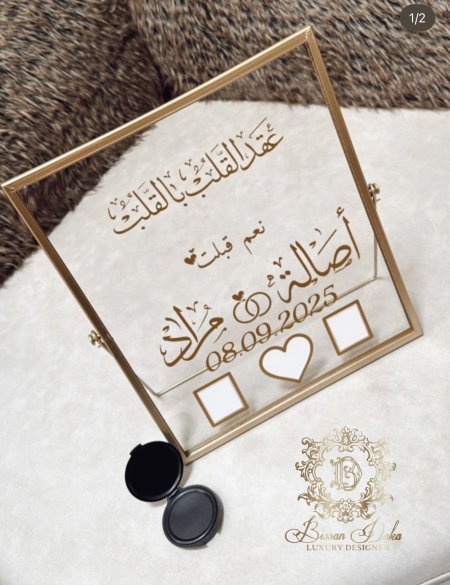 1/2
عَقَدَ القَلْبُ بِالقَلْبُ
نعم قبلت
أصَالة مُرَاد
08.09.2025
B D
Bissan Daka
LUXURY DESIGNER